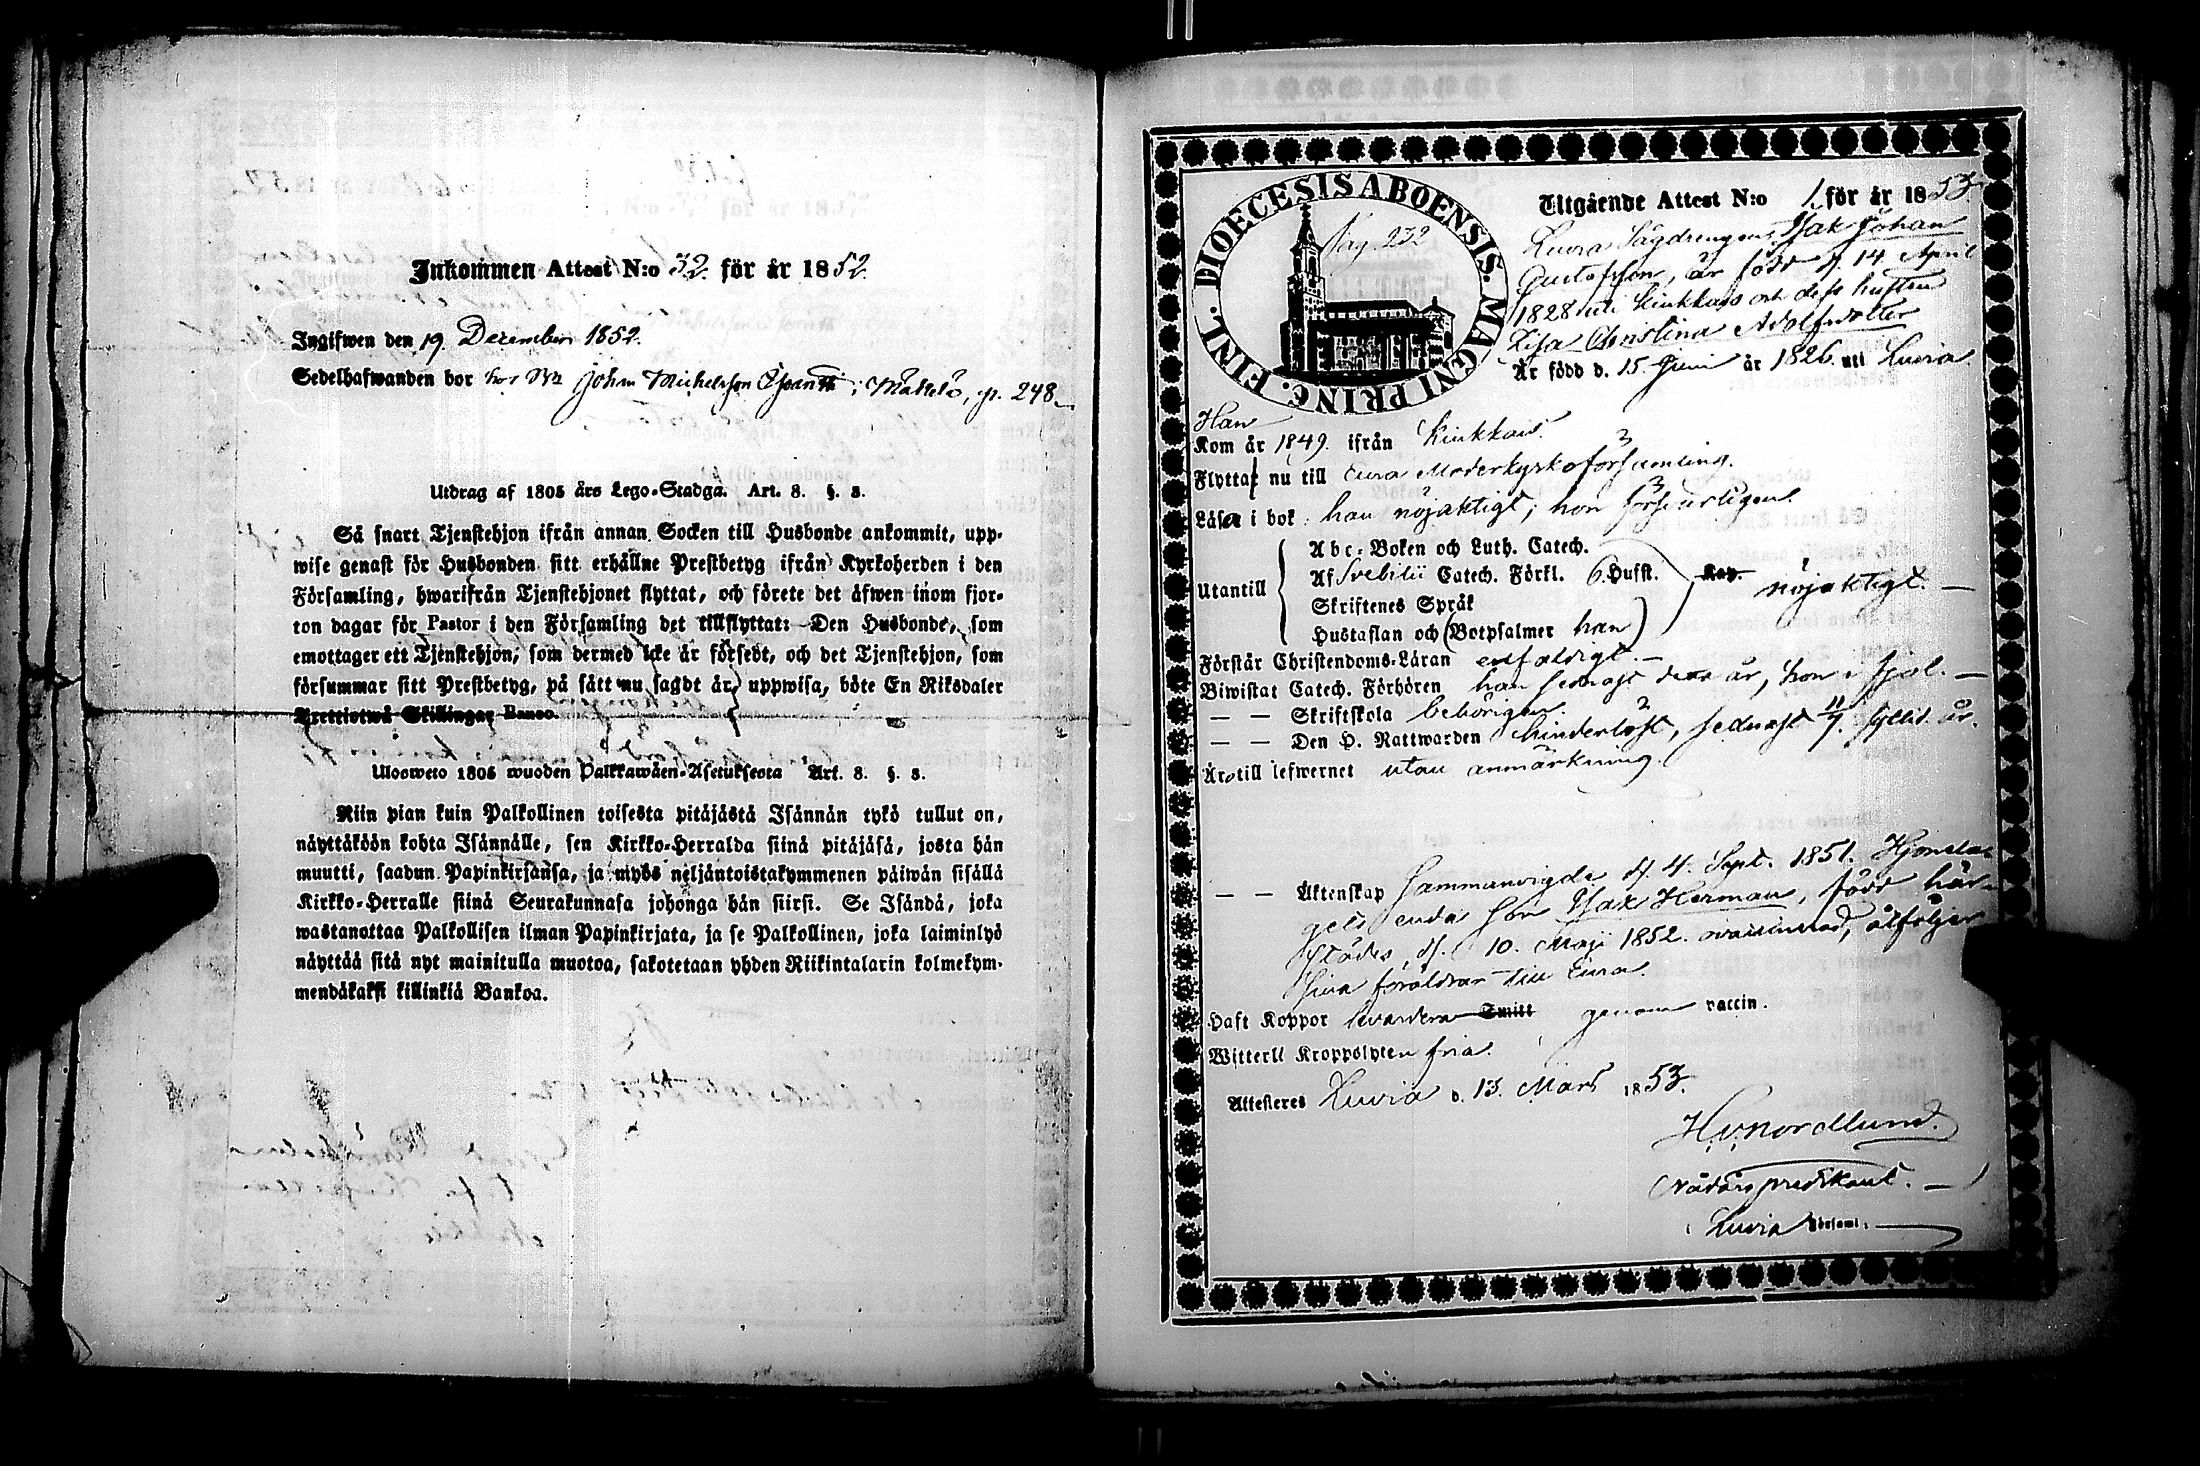 Inkommen Attest N:o 32. för år 1852.
Ingifwen den 19. December 1852.
Sedelhafwanden bor hos Johan Michelsson i p. 248.
Utdrag af 1805 års Lego-Stadga. Art. 8. §. 3.
Så snart Tjenstehjon ifrån annan Socken till Husbonde ankommit, upp-
wise genast för Husbonden sitt erhållne Prestbetyg ifrån Kyrkoherden i den
Församling, hwarifrån Tjenstehjonet flyttat, och förete det äfwen inom fjor-
ton dagar för Pastor i den Församling det tillflyttat: Den Husbonde, som
emottager ett Tjenstehjon, som dermed icke är försedt, och det Tjenstehjon, som
försummar sitt Prestbetyg, på sätt nu sagdt är, uppwisa, böte En Riksdaler
Trettiotwå Skillingar Banco.
Ulosweto 1805 wuoden Palkkawäen-Asetuksesta Art. 8. §. 3.
Niin pian kuin Palkollinen toisesta pitäjästä Isännän tykö tullut on,
näyttäköön kohta Isännälle, sen Kirkko-Herralda siinä pitäjäsä, josta hän
muutti, saadun Papinkirjansa, ja myös neljäntoistakymmenen päiwän sisällä
Kirkko-Herralle siinä Seurakunnasa johonga hän siirsi. Se Isändä, joka
wastanottaa Palkollisen ilman Papinkirjata, ja se Palkollinen, joka laiminlyö
näyttää sitä nyt mainitulla muotoa, sakotetaan yhden Riikintalarin kolmekym-
mendäkaksi killinkiä Bankoa.
DIOECESIS ABOENSIS. MAGNI PRINC. FINL.
Pag. 232
Utgående Attest N:o 1 för år 1853.
Luvia Sågdrengen Isak Johan
Gustafsson, är född d. 14 April
1828 uti Kiukkais och dess hustru
Lisa Christina Adolfsdotter
Är född d. 15 Juni år 1826 uti Luvia
Han
Kom år 1849. ifrån Kiukkais.
Flyttar nu till Eura Moderkyrkoförsamling.
Läsa i bok han nöjaktigt; hon försvarligen.
Utantill
Abc-Boken och Luth. Catech.
Af Svebilii Catech. Förkl. 6. Hufst. Kap. nöjaktigt.
Skriftenes Språk
Hustaflan och (Botpsalmer han)
Förstår Christendoms-Läran enfaldigt.
Biwistat Catech. Förhören han sednast detta år, hon i fjol.
— — Skriftskola behörigen.
— — Den H. Nattwarden hinderlöst, sednast sistl. år.
Äro till lefwernet utan anmärkning.
— — Äktenskap Sammanvigde d. 4. Sept. 1851. Hjonela-
gets enda son Isak Herman, född här-
städes, d. 10. Maji 1852. ovaccinerad, åtföljer
sina föräldrar till Eura.
Haft Koppor hvardera Smitt genom vaccin.
Witterl. Kroppslyten fria.
Attesteres Luvia d. 13. Mars 1853.
H. V. Nordlund.
Nådårspredikant.
Luvia Församl.